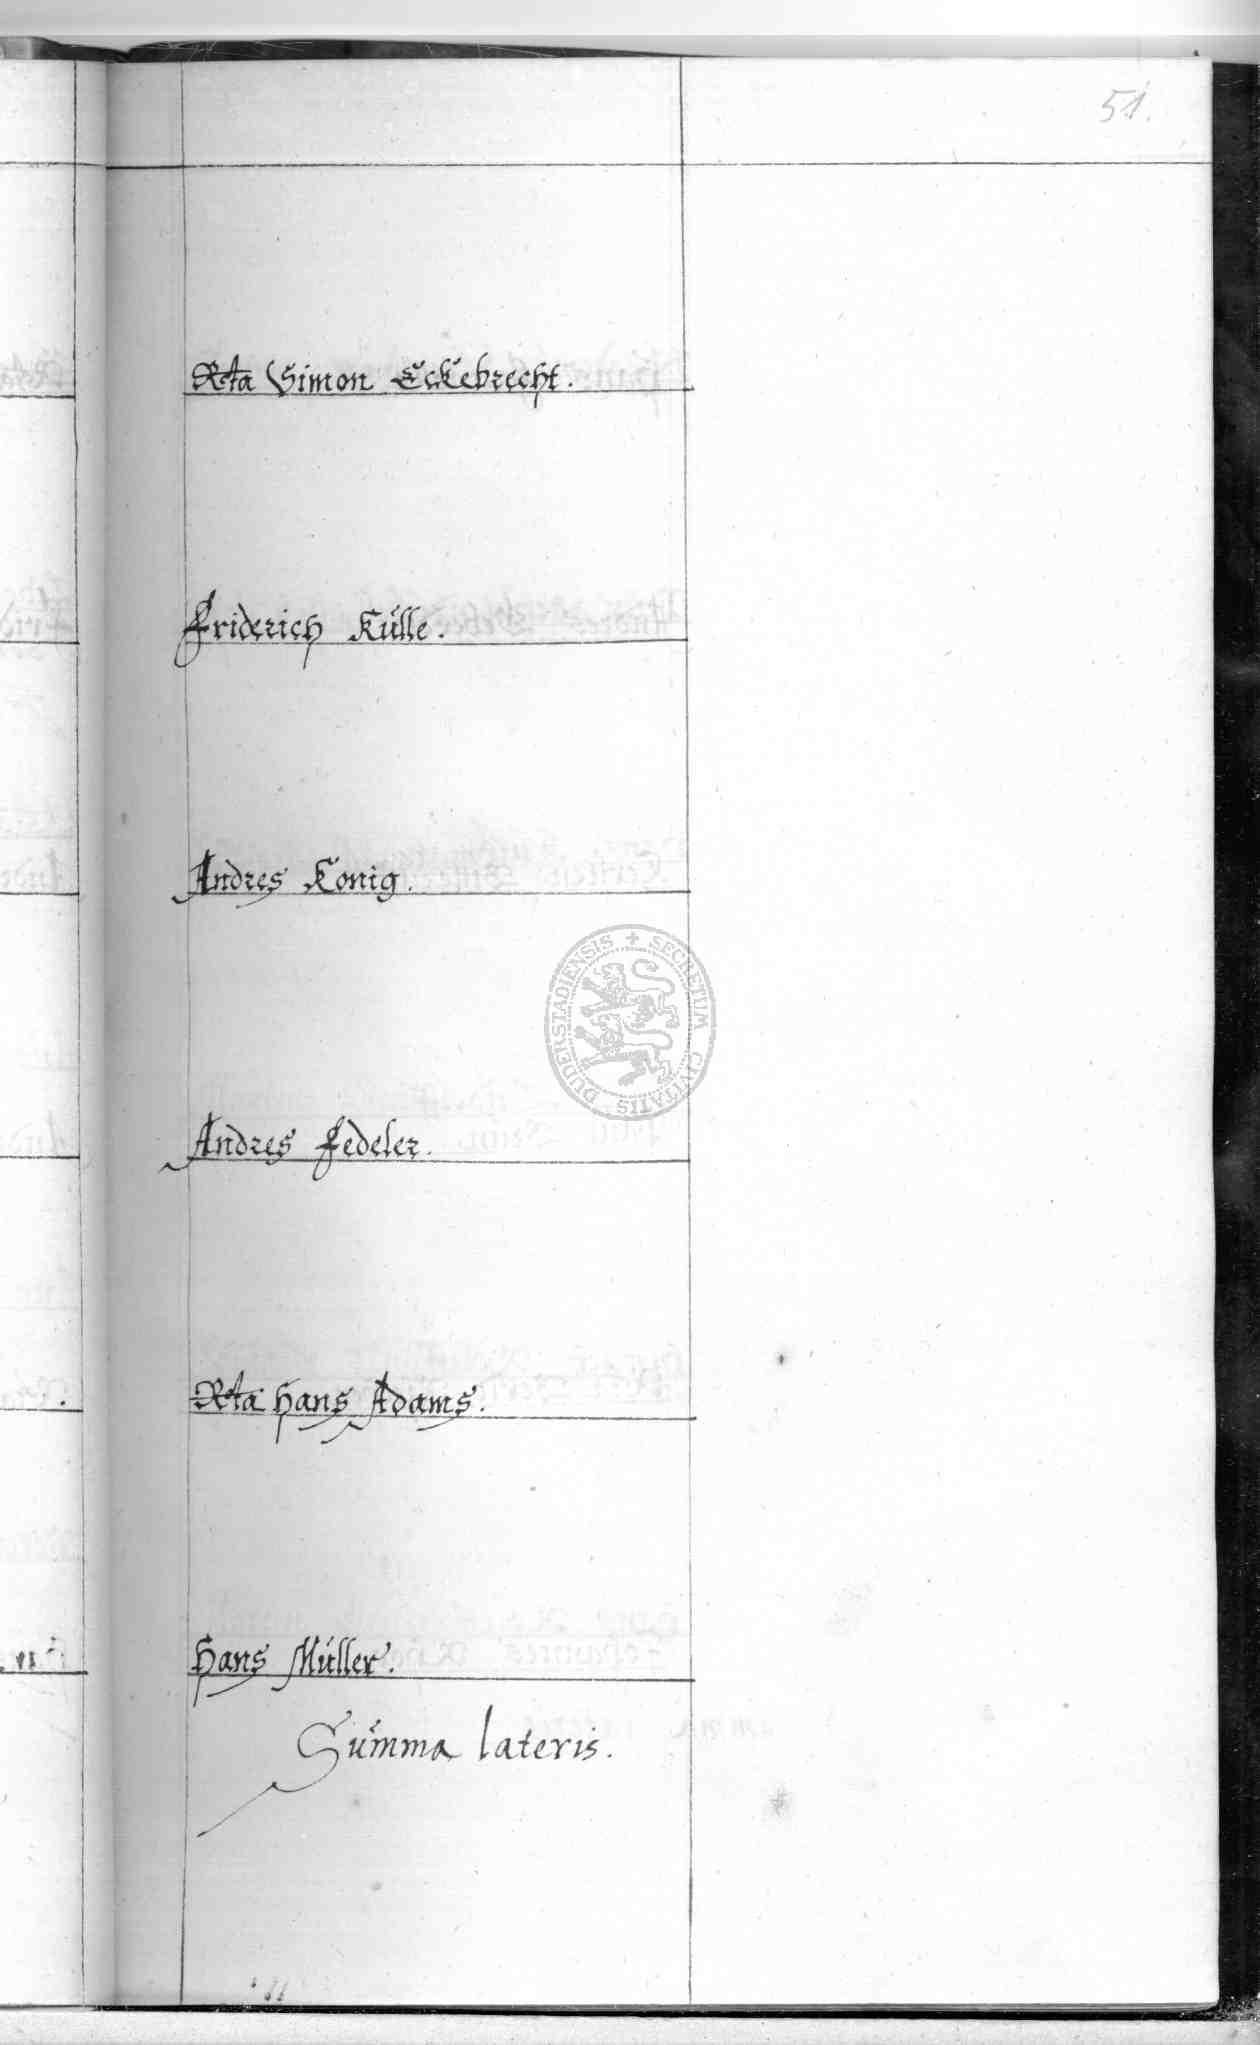 51.
Rta Simon Eckebrecht.
Friderich Külle.
Andres Konig.
DUDERSTADIENSIS + SECRETUM CIVITATIS
Andres Fedeler.
Rta Hans Adams.
Hans Müller.
Summa lateris.